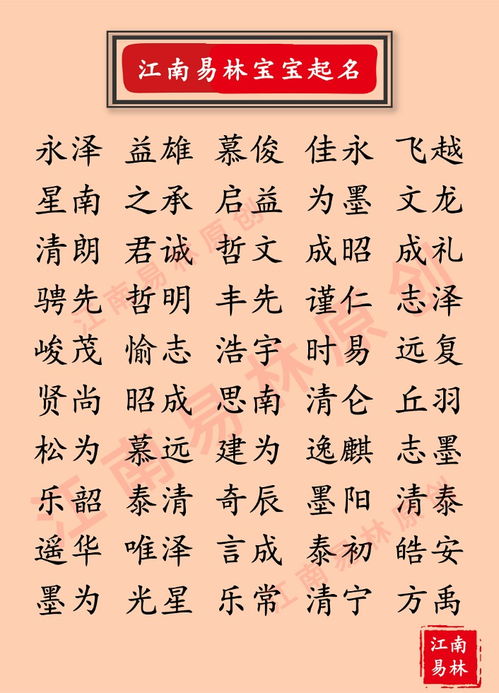 江南易林宝宝起名
永泽 益雄 慕俊 佳永 飞越
星南 之承 启益 为墨 文龙
清朗 君诚 哲文 成昭 成礼
骋先 哲明 丰先 谨仁 志泽
峻茂 愉志 浩宇 时易 远复
贤尚 昭成 思南 清仑 丘羽
松为 慕远 建为 逸麒 志墨
乐韶 泰清 奇辰 墨阳 清泰
遥华 唯泽 言成 泰初 皓安
墨为 光星 乐常 清宁 方禹
江南易林原创
江南易林原创
江南易林原创
江南
易林